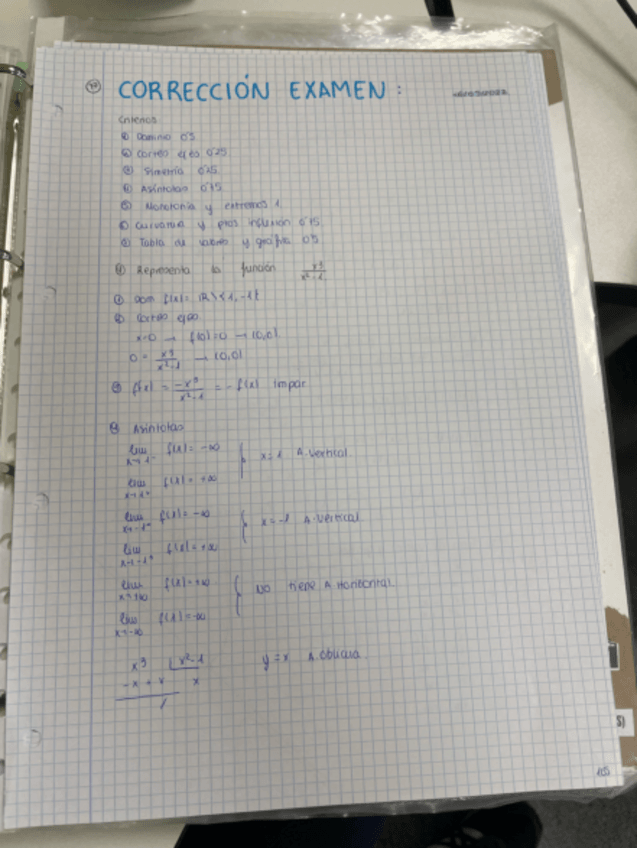 CORRECCIÓN EXAMEN:
Criterios
① Dominio 0'5
② Cortes ejes 0'25
③ Simetría 0'25
④ Asíntotas 0'75
⑤ Monotonía y extremos 1
⑥ Curvatura y ptos inflexión 0'75
⑦ Tabla de valores y gráfica 0'5
① Representa la función x³/x²-1
① Dom f(x)= ℝ\{1,-1}
② Cortes ejes
x=0 → f(0)=0 → (0,0)
0 = x³/x²-1 → (0,0)
③ f(-x) = -x³/x²-1 = -f(x) Impar
④ Asíntotas
lim x→1⁻ f(x)= -∞
x=1 A.Vertical
lim x→1⁺ f(x)= +∞
lim x→-1⁻ f(x)= -∞
x=-1 A.Vertical
lim x→-1⁺ f(x)= +∞
lim x→+∞ f(x)= +∞
No tiene A.Horizontal
lim x→-∞ f(x)= -∞
x³ x²-1
y=x A.Oblicua
-x + x x
S)